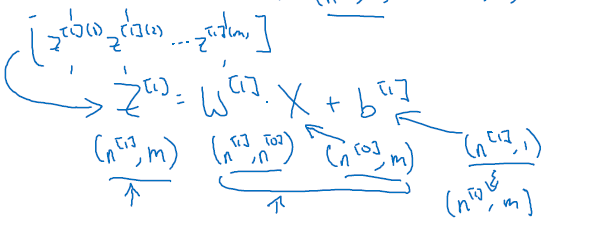 [z^[1](1) z^[1](2) ... z^[1](m)]
Z^[1] = W^[1] · X + b^[1]
(n^[1], m) (n^[1], n^[0]) (n^[0], m) (n^[1], 1)
(n^[1], m]